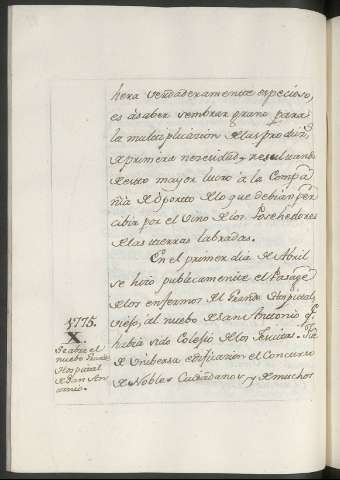 hera verdaderamente especioso,
es á saber sembrar grano para
la multiplicación de las produc.
de primera necesidad, resultando
de esto mayor lucro á la Compa
ñia de Oporto de lo que debian per
cibir por el vino de los Cosechedores
de las tierras labradas.
En el primer dia de Abril
se hizo publicamente el Pasage
de los enfermos del Grande Hospital
viejo, al nuebo de San Antonio q.
habia sido Colegio de los Jesuitas.
de universa edificacion el Concurso
de Nobles Ciudadanos y de muchos
1775.
X.
Se abre el
nuebo Grande
Hospital
de San An
tonio.